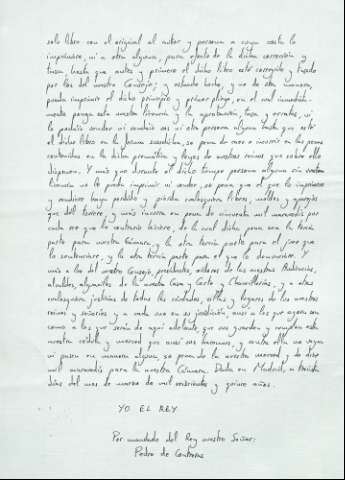 solo libro con el original al autor y persona a cuya costa lo
imprimiere, ni a otra alguna, para efecto de la dicha corrección y
tasa, hasta que antes y primero el dicho libro esté corregido y tasado
por los del nuestro Consejo; y estando hecho, y no de otra manera,
pueda imprimir el dicho principio y primer pliego, en el cual inmediata-
mente ponga esta nuestra licencia y la aprobación, tasa y erratas, ni
lo podáis vender ni vendáis vos ni otra persona alguna hasta que esté
el dicho libro en la forma susodicha, so pena de caer e incurrir en las penas
contenidas en la dicha premática y leyes de nuestros reinos que sobre ello
disponen. Y más que durante el dicho tiempo persona alguna sin vuestra
licencia no le pueda imprimir ni vender, so pena que el que lo imprimiere
y vendiere haya perdido y pierda cualesquiera libros, moldes y aparejos
que dél tuviere, y más incurra en pena de cincuenta mil maravedís por
cada vez que lo contrario hiciere, de la cual dicha pena sea la tercia
parte para nuestra Cámara, y la otra tercia parte para el juez que
lo sentenciare, y la otra tercia parte para el que lo denunciare. Y
más a los del nuestro Consejo, presidentes, oidores de las nuestras Audiencias,
alcaldes, alguaciles de la nuestra Casa y Corte y Chancillerías, y a otras
cualesquiera justicias de todas las ciudades, villas y lugares de los nuestros
reinos y señoríos y a cada uno en su jurisdición, ansí a los que agora son
como a los que serán de aquí adelante, que vos guarden y cumplan esta
nuestra cédula y merced que ansí vos hacemos, y contra ella no vayan
ni pasen en manera alguna, so pena de la nuestra merced y de diez
mil maravedís para la nuestra Cámara. Dada en Madrid, a treinta
días del mes de marzo de mil seiscientos y quince años.
YO EL REY
Por mandado del Rey nuestro Señor:
Pedro de Contreras